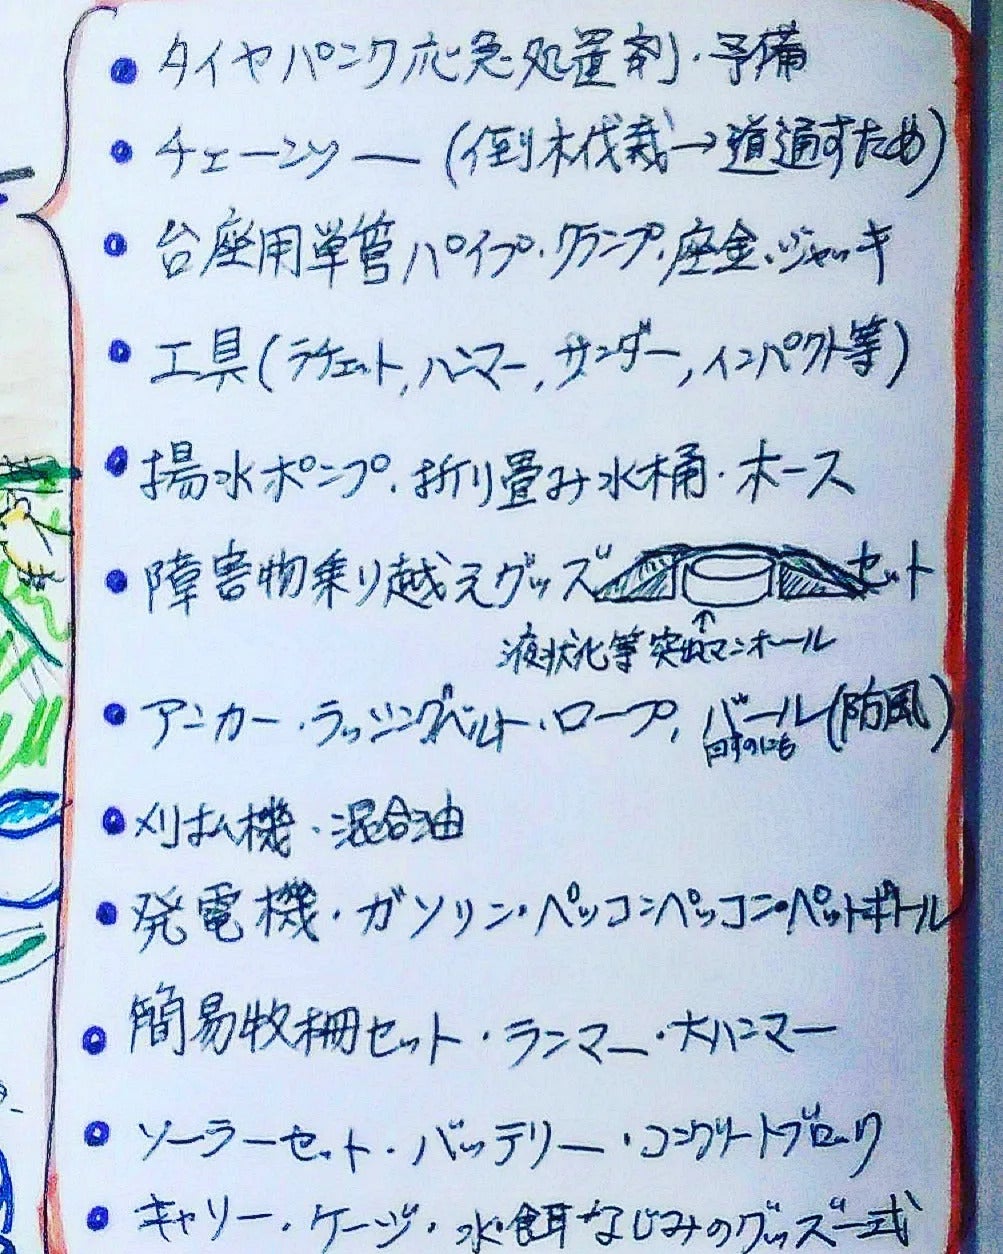 ・タイヤパンク応急処置剤・予備
・チェーンソー(倒木伐栽→道通すため)
・台座用単管パイプ・クランプ・座金・ジャッキ
・工具(ラチェット,ハンマー,サンダー,インパクト等)
・揚水ポンプ・折り畳み水桶・ホース
・障害物乗り越えグッズ セット
液状化等突出マンホール
・アンカー・ラッシングベルト・ロープ,バール(防風)
回すのにも
・刈払機・混合油
・発電機・ガソリン・ペッコンペッコン・ペットボトル
・簡易牧柵セット・ランマー・大ハンマー
・ソーラーセット・バッテリー・コンクリートブロック
・キャリー・ケージ・水・餌なじみのグッズ一式